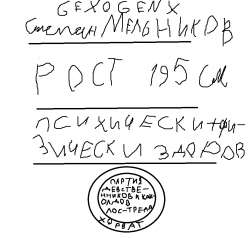 GEXOGENX
Степан МЕЛЬНИКОВ
РОСТ 195 см
ПСИХИЧЕСКИ+ФИ-
ЗИЧЕСКИ ЗДОРОВ
ПАРТИЯ
ДЕВСТВЕ-
ННИКОВ И КОЛ
ДОВ
ЛОС-ТРЕЛА
ХОРВАТ